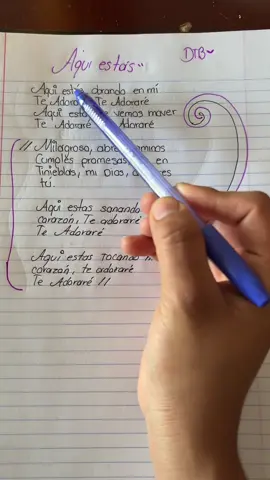 Aqui estás
DTB
Aqui estás obrando en mí
Te Adoraré Te Adoraré
Aqui estas te vemos mover
Te Adoraré Te Adoraré
// Milagroso, abres
Cumples promesas, en
Tinieblas, mi Dios,
tú.
Aqui estas sanando
corazón, Te adoraré
Te Adoraré
Aqui estas Tocando
corazón, te adoraré
Te Adoraré //